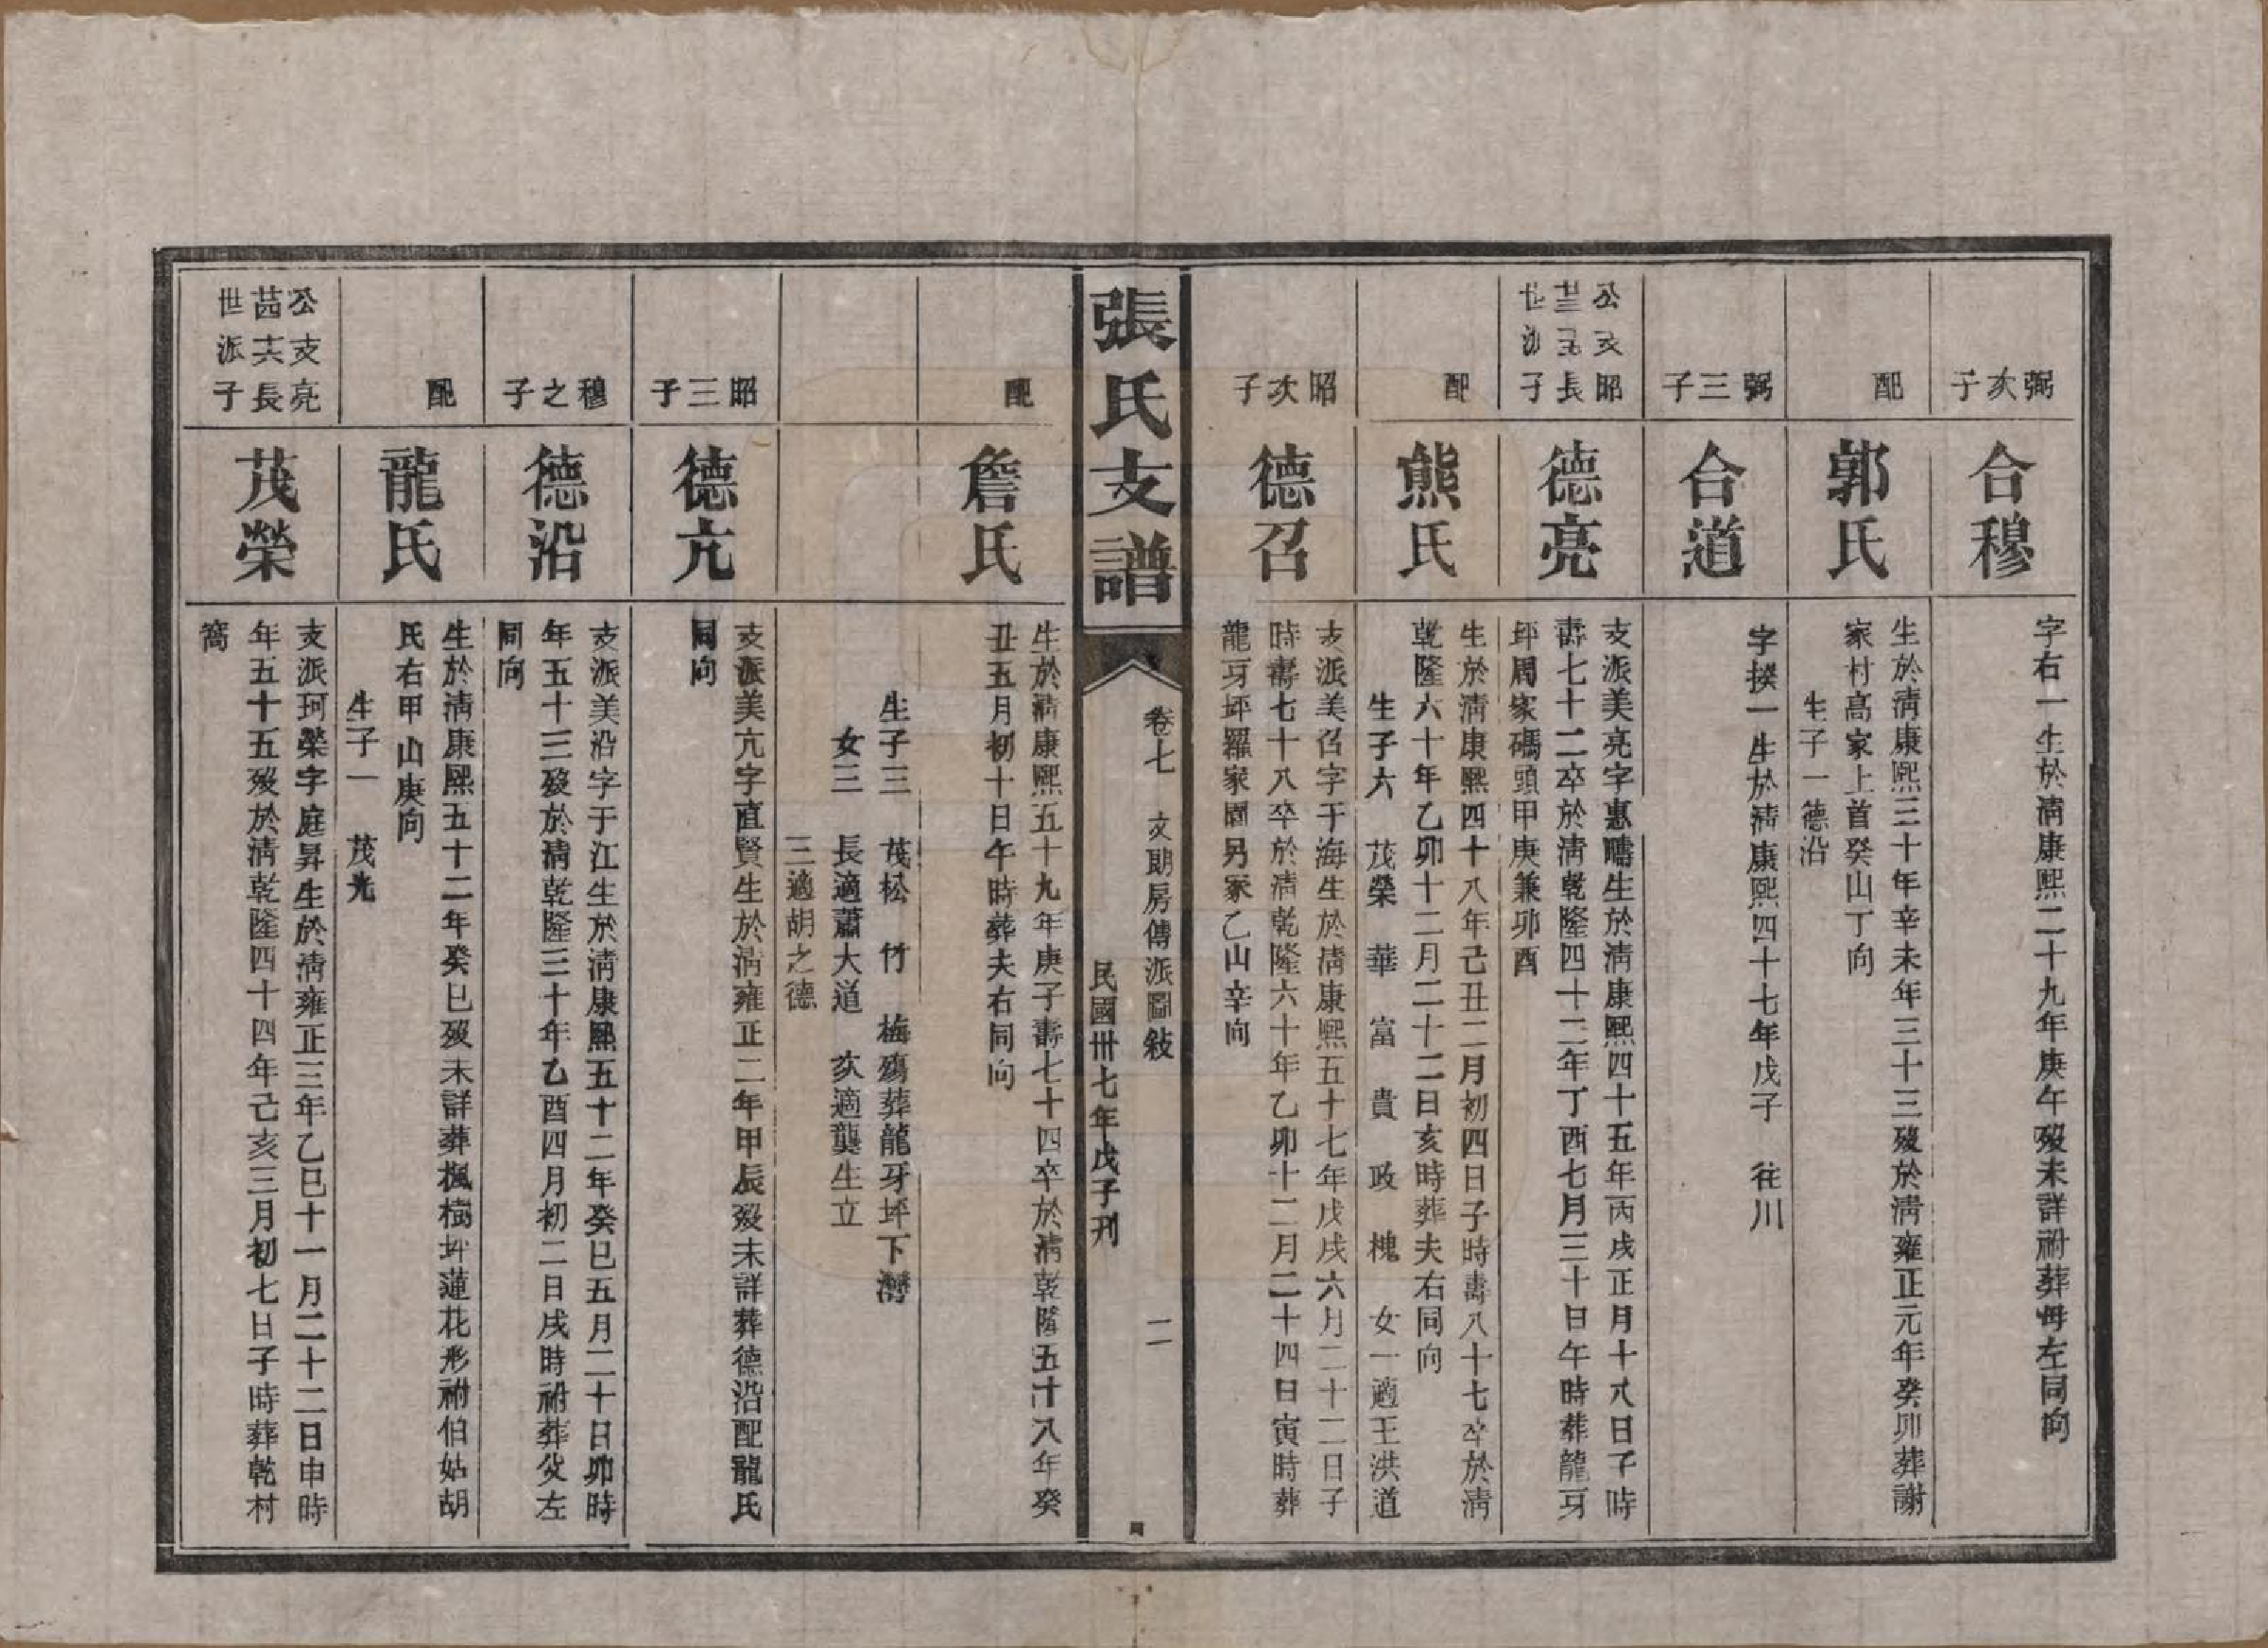 弼次子
合穆
字右一生於清康熙二十九年庚午歿未詳祔葬母左同向
配
郭氏
生於清康熙三十年辛未年三十三歿於清雍正元年癸卯葬謝
家村高家上首癸山丁向
生子一德沿
弼三子
合道
字揆一生於清康熙四十七年戊子 往川
公支昭
長子
世派
德亮
支派美亮字惠疇生於清康熙四十五年丙戌正月十八日子時
壽七十二卒於清乾隆四十二年丁酉七月三十日午時葬龍牙
坪周家碼頭甲庚兼卯酉
配
熊氏
生於清康熙四十八年己丑二月初四日子時壽八十七卒於清
乾隆六十年乙卯十二月二十二日亥時葬夫右同向
生子六 茂榮 華 富 貴 政 槐 女一適王洪道
昭次子
德召
支派美召字于海生於清康熙五十七年戊戌六月二十二日子
時壽七十八卒於清乾隆六十年乙卯十二月二十四日寅時葬
龍牙坪羅家園另冢乙山辛向
張氏支譜
卷七 文期房傳派圖敍 二
民國卅七年戊子刊
配
詹氏
生於清康熙五十九年庚子壽七十四卒於清乾隆五十八年癸
丑五月初十日午時葬夫右同向
生子三 茂松 竹 梅殤葬龍牙坪下灣
女三 長適蕭大道 次適龔生立
三適胡之德
昭三子
德亢
支派美亢字直賢生於清雍正二年甲辰歿未詳葬德沿配龍氏
同向
穆之子
德沿
支派美沿字于江生於清康熙五十二年癸巳五月二十日卯時
年五十三歿於清乾隆三十年乙酉四月初二日戌時祔葬父左
同向
配
龍氏
生於清康熙五十二年癸巳歿未詳葬楓樹坪蓮花形祔伯姑胡
氏右甲山庚向
生子一 茂光
公支亮
苗六長
世派子
茂榮
支派珂榮字庭昇生於清雍正三年乙巳十一月二十二日申時
年五十五歿於清乾隆四十四年己亥三月初七日子時葬乾村
窩